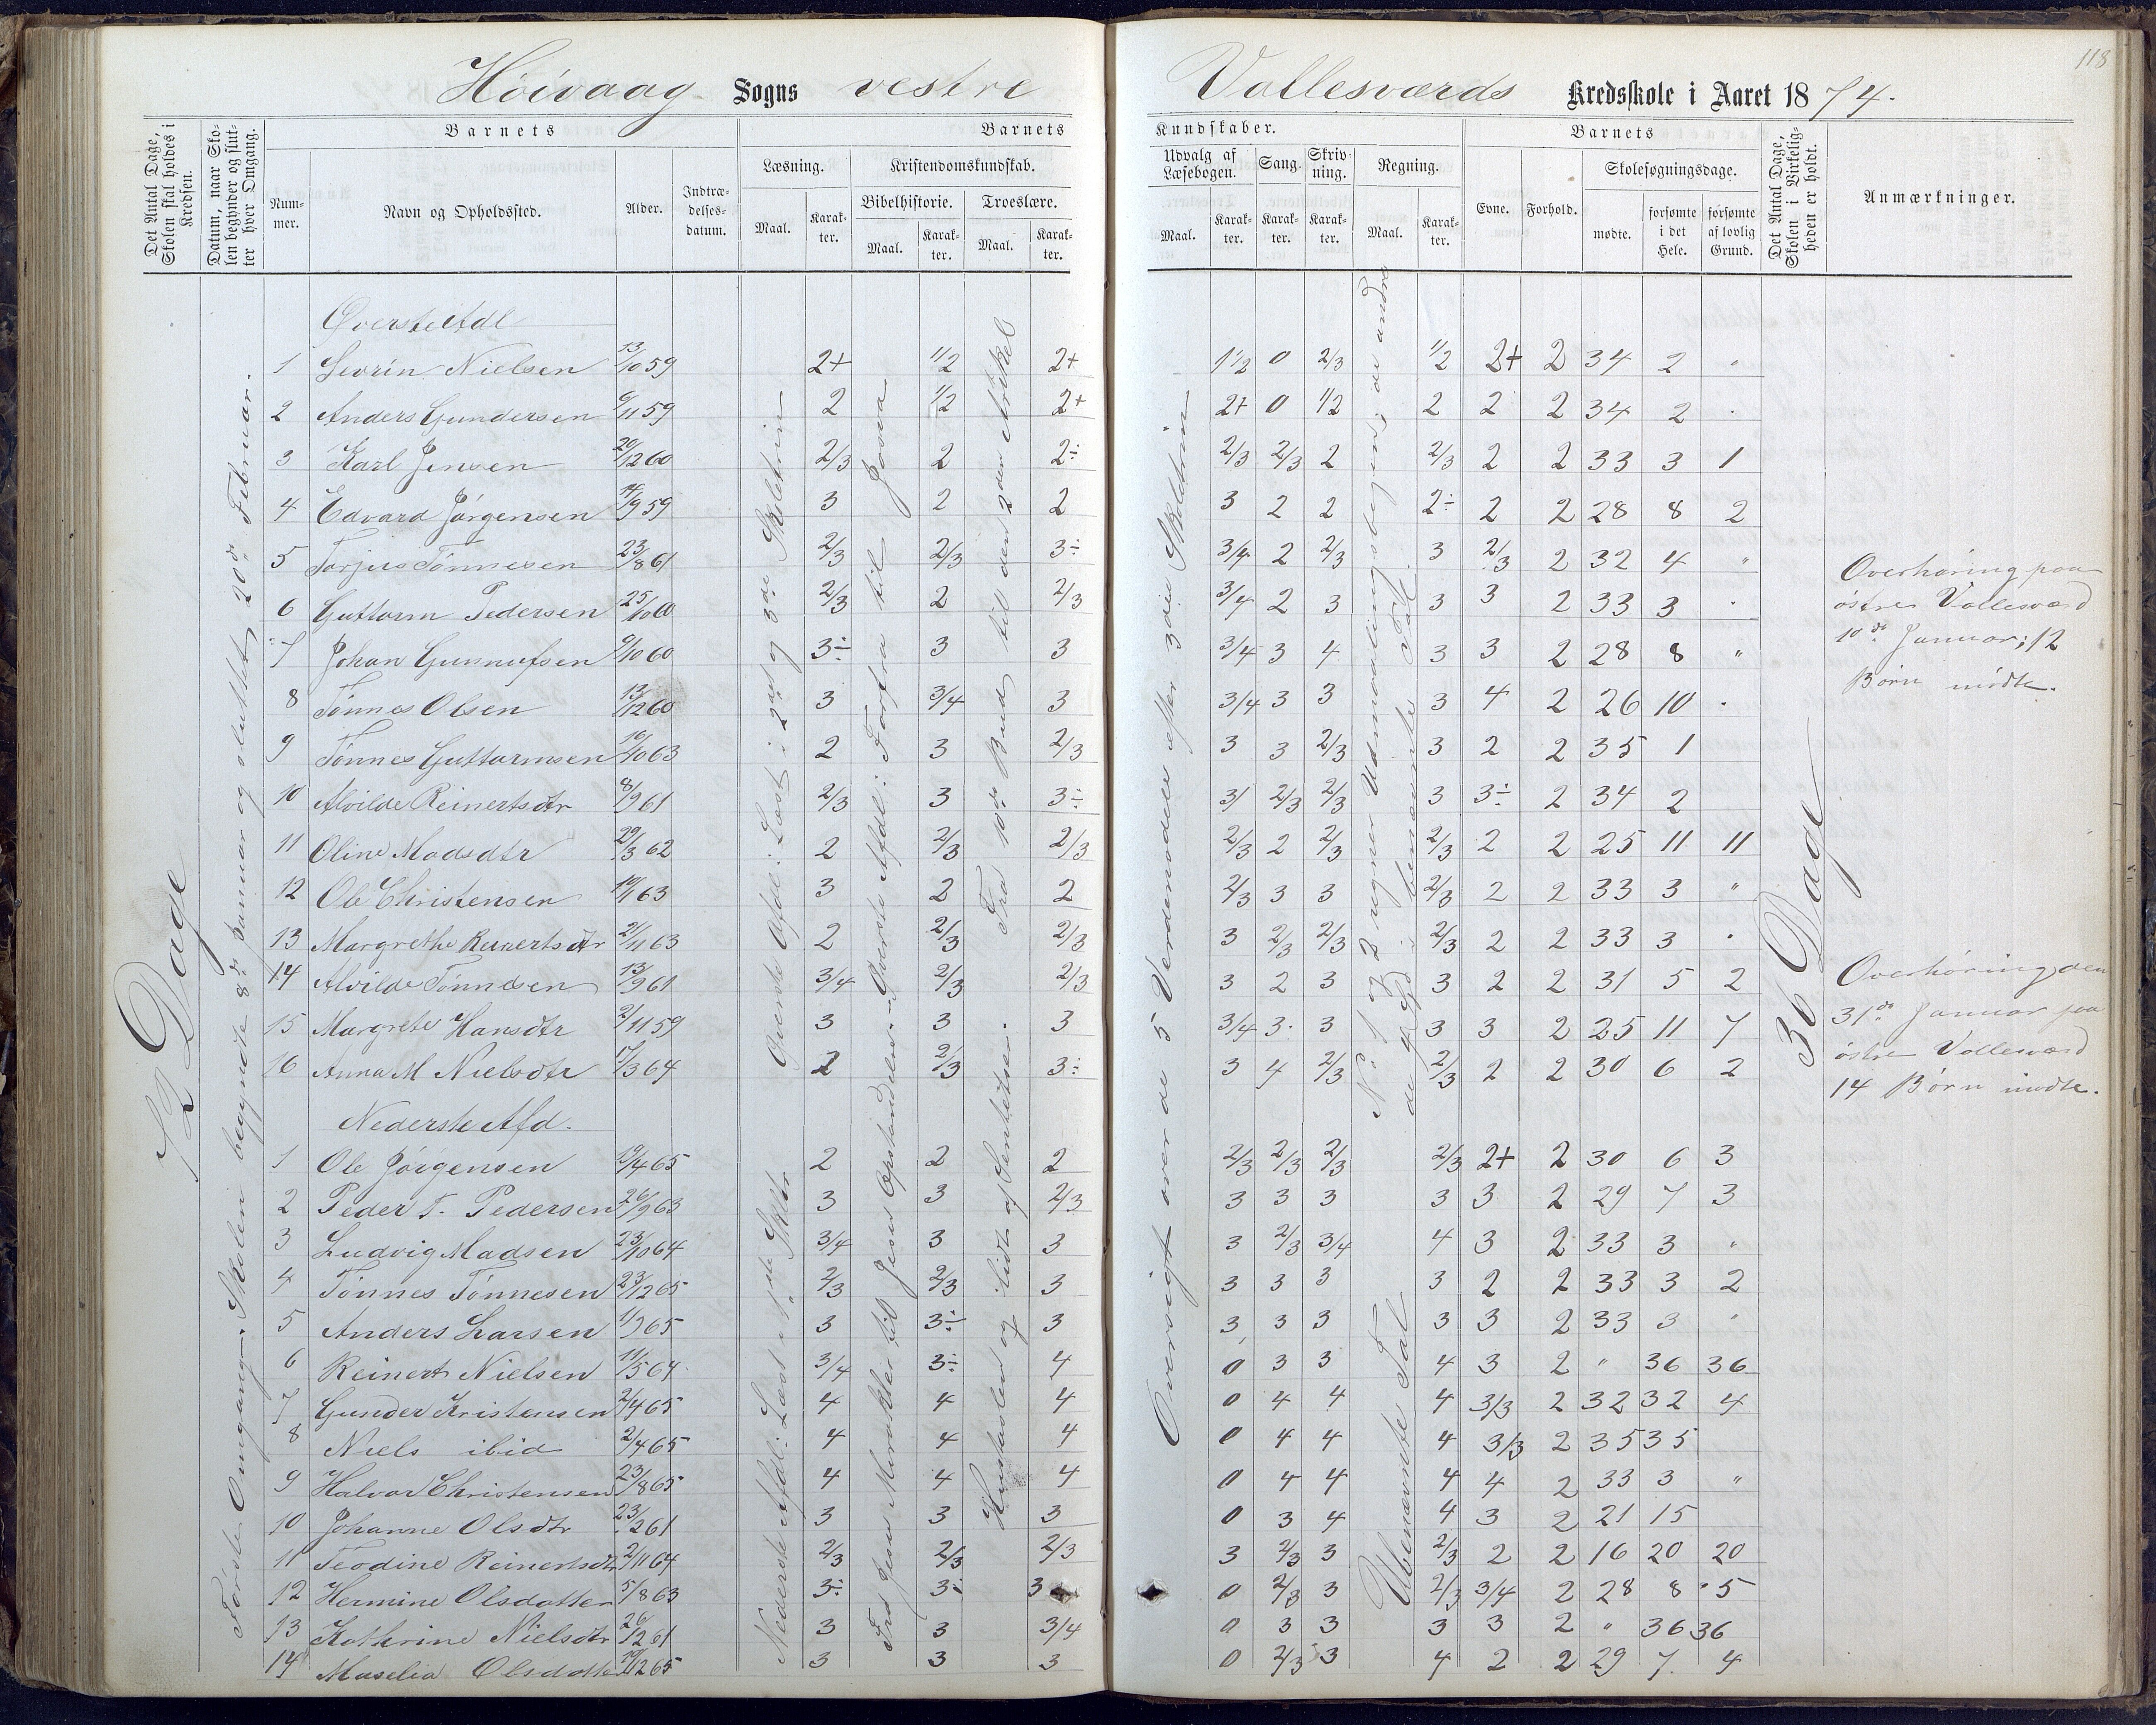 118
Höivaag Sogns vestre Vallesværds Kredsskole i Aaret 1874.
Det Antal Dage, Skolen skal holdes i Kredsen.
Datum, naar Skolen begynder og slutter hver Omgang.
Barnets
Nummer.
Navn og Opholdssted.
Alder.
Indtrædelsesdatum.
Barnets
Læsning.
Maal.
Karakter.
Kristendomskundskab.
Bibelhistorie.
Maal.
Karakter.
Troeslære.
Maal.
Karakter.
Kundskaber.
Udvalg af Læsebogen.
Maal.
Karakter.
Sang.
Karakter.
Skrivning.
Karakter.
Regning.
Maal.
Karakter.
Barnets
Evne.
Forhold.
Skolesøgningsdage.
mødte.
forsømte i det Hele.
forsømte af lovlig Grund.
Det Antal Dage, Skolen i Virkeligheden er holdt.
Anmærkninger.
72 Dage
Første Omgang. Skolen begyndte 8de Januar og sluttet 20de Februar.
Øverste Afdl: Læst i 2det og 3die Skoletrin
Nederste Afdl: Læst i 1ste Skltr.
Øverste Afdl: Forfra til Jovea
Fra Jesu Mirakler til Jesus Opstandelse
Fra 10de Bud til den 2den Artikel
Huustavlen og lidt af Sentetser.
Oversigt over de 5 Verdensdele efter 3die Skoletrin
No 1 og 2 regner Udenvalingsbogen; de andre
de 4 Spd. i benævnte Tal.
Ubenævnte Tal
36 Dage
Øverste Afdl
1 Sevrin Nielsen 13/10 59 2+ 1/2 2+ 1/2 0 2/3 1/2 2+ 2 34 2 "
2 Anders Gundersen 6/11 59 2 1/2 2+ 2+ 0 1/2 2 2 2 34 2 "
3 Karl Jensen 20/12 60 2/3 2 2÷ 2/3 2/3 2 2/3 2 2 33 3 1
4 Edvard Jørgensen 14/9 59 3 2 2 3 2 2 2÷ 2 2 28 8 2
5 Torjus Tønnesen 23/8 61 2/3 2/3 3÷ 3/4 2 2/3 3 2/3 2 32 4 "
6 Guttorm Pedersen 25/10 60 2/3 2 2/3 3/4 2 3 3 3 2 33 3 "
7 Johan Gunnufsen 6/10 60 3÷ 3 3 3/4 3 4 3 3 2 28 8 "
8 Tønnes Olsen 13/12 60 3 3/4 3 3/4 3 3 3 4 2 26 10 "
9 Tønnes Guttormsen 10/10 63 2 3 2/3 3 3 2/3 3 2 2 35 1
10 Alvilde Reinertsdtr 8/9 61 2/3 3 3÷ 3/ 2/3 2/3 3 3÷ 2 34 2
11 Oline Madsdtr 29/3 62 2 2/3 2/3 2/3 2 2/3 2/3 2 2 25 11 11
12 Ole Christensen 19/1 63 3 2 2 2/3 3 3 2/3 2 2 33 3 "
13 Margrethe Reinertsdtr 21/11 63 2 2/3 2/3 3 2/3 2/3 2/3 2 2 33 3 "
14 Alvilde Tønndsen 13/9 61 3/4 2/3 2/3 3 2 3 3 2 2 31 5 2
15 Margrete Hansdtr 2/11 59 3 3 3 3/4 3 3 3 3 2 25 11 7
16 Anna M Nielsdtr 17/3 64 2 2/3 3÷ 3 4 2/3 2/3 2 2 30 6 2
Nederste Afd.
1 Ole Jörgensen 19/4 65 2 2 2 2/3 2/3 2/3 2/3 2+ 2 30 6 3
2 Peder T. Pedersen 26/9 63 3 3 2/3 3 3 3 3 3 2 29 7 3
3 Ludvig Madsen 23/10 64 3/4 3 3 3 2/3 3/4 4 3 2 33 3 "
4 Tønnes Tønnesen 23/12 65 2/3 2/3 3 3 3 3 3 2 2 33 3 2
5 Anders Larsen 1/9 65 3 3÷ 3 3 3 3 3 3 2 33 3 "
6 Reinert Nielsen 11/5 64 3/4 3÷ 4 0 3 3 4 3 2 " 36 36
7 Gunder Kristensen 2/4 65 4 4 4 0 4 4 4 3/3 2 32 32 4
8 Niels ibid 2/4 65 4 4 4 0 4 4 4 3/3 2 35 35
9 Halvor Christensen 23/8 65 4 4 4 0 4 4 4 4 2 33 3 "
10 Johanne Olsdtr 23/2 61 3 3 3 0 3 4 4 3 2 21 15
11 Teodine Reinertsdtr 2/11 64 2/3 2/3 2/3 3 2/3 3 2/3 2 2 16 20 20
12 Hermine Olsdatter 5/8 63 3÷ 3÷ 3 0 2/3 3 2/3 3/4 2 28 8 5
13 Kathrine Nielsdtr 26/12 61 3 3 3/4 0 3 3 3 3 2 " 36 36
14 Maselia Olsdatter 19/12 65 3 3 3 0 2/3 3 4 2 2 29 7 4
Overhøring paa
østre Vallesværd
10de Januar; 12
Børn mødte.
Overhøring den
31de Januar paa
østre Vallesværd
14 Børn mødte.